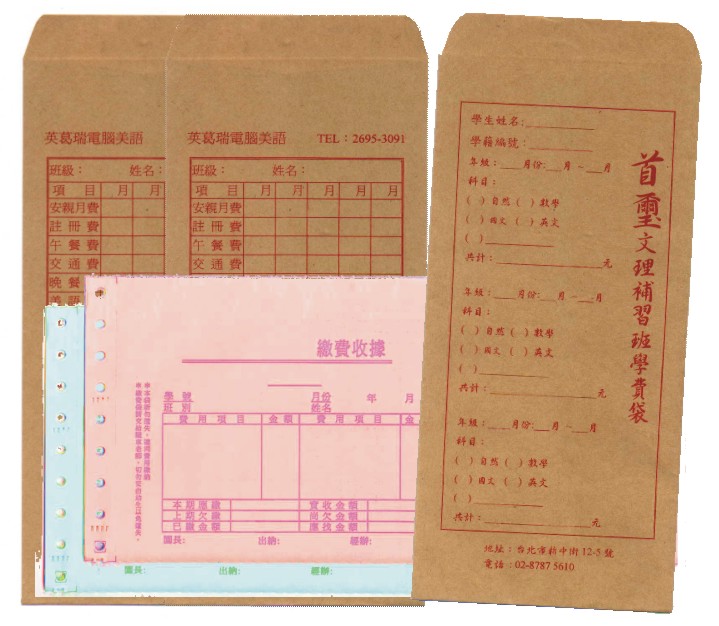 英葛瑞電腦美語
班級： 姓名：
項 目 月 月
安親月費
註 冊 費
午 餐 費
交 通 費
晚 餐
美 語
英葛瑞電腦美語 TEL：2695-3091
班級： 姓名：
項 目 月 月 月 月
安親月費
註 冊 費
午 餐 費
交 通 費
繳費收據
學 號 月份 年 月
班 別 姓名
費 用 項 目 金 額 費 用 項 目 金
本 期 應 繳 實 收 金 額
上 期 欠 繳 尚 欠 金 額
已 繳 金 額 應 找 金 額
園長： 出納： 經辦：
園長： 出納： 經辦：
首璽文理補習班學費袋
學生姓名：
學籍編號：
年級： 月份： 月 － 月
科目：
( ) 自然 ( ) 數學
( ) 國文 ( ) 英文
( )
共計： 元
年級： 月份： 月 － 月
科目：
( ) 自然 ( ) 數學
( ) 國文 ( ) 英文
( )
共計： 元
年級： 月份： 月 － 月
科目：
( ) 自然 ( ) 數學
( ) 國文 ( ) 英文
( )
共計： 元
電話：02-8787 5610